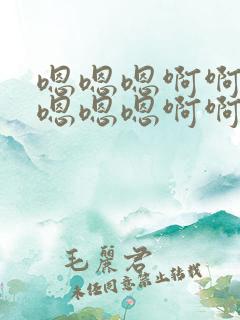 嗯嗯嗯啊啊
嗯嗯嗯啊啊
毛麗君
未经同意禁止转载